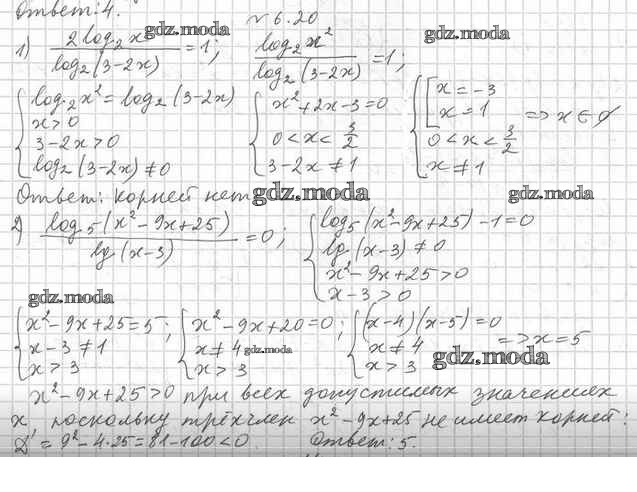 Ответ: 4.
№ 6.20
1) 2 log₂ x / log₂ (3-2x) = 1; log₂ x² / log₂ (3-2x) = 1;
{ log₂ x² = log₂ (3-2x) { x² + 2x - 3 = 0 { [ x = -3
x > 0 0 < x < 3/2 x = 1 => x ∈ ∅
3 - 2x > 0 3 - 2x ≠ 1 0 < x < 3/2
log₂ (3-2x) ≠ 0 x ≠ 1
Ответ: корней нет
2) log₅ (x² - 9x + 25) / lg (x-3) = 0; { log₅ (x² - 9x + 25) - 1 = 0
lg (x-3) ≠ 0
x² - 9x + 25 > 0
x - 3 > 0
{ x² - 9x + 25 = 5; { x² - 9x + 20 = 0; { (x-4)(x-5) = 0
x - 3 ≠ 1 x ≠ 4 x ≠ 4 => x = 5
x > 3 x > 3 x > 3
x² - 9x + 25 > 0 при всех допустимых значениях
x, поскольку трёхчлен x² - 9x + 25 не имеет корней:
D = 9² - 4·25 = 81 - 100 < 0. Ответ: 5.
gdz.moda
gdz.moda
gdz.moda
gdz.moda
gdz.moda
gdz.moda
gdz.moda